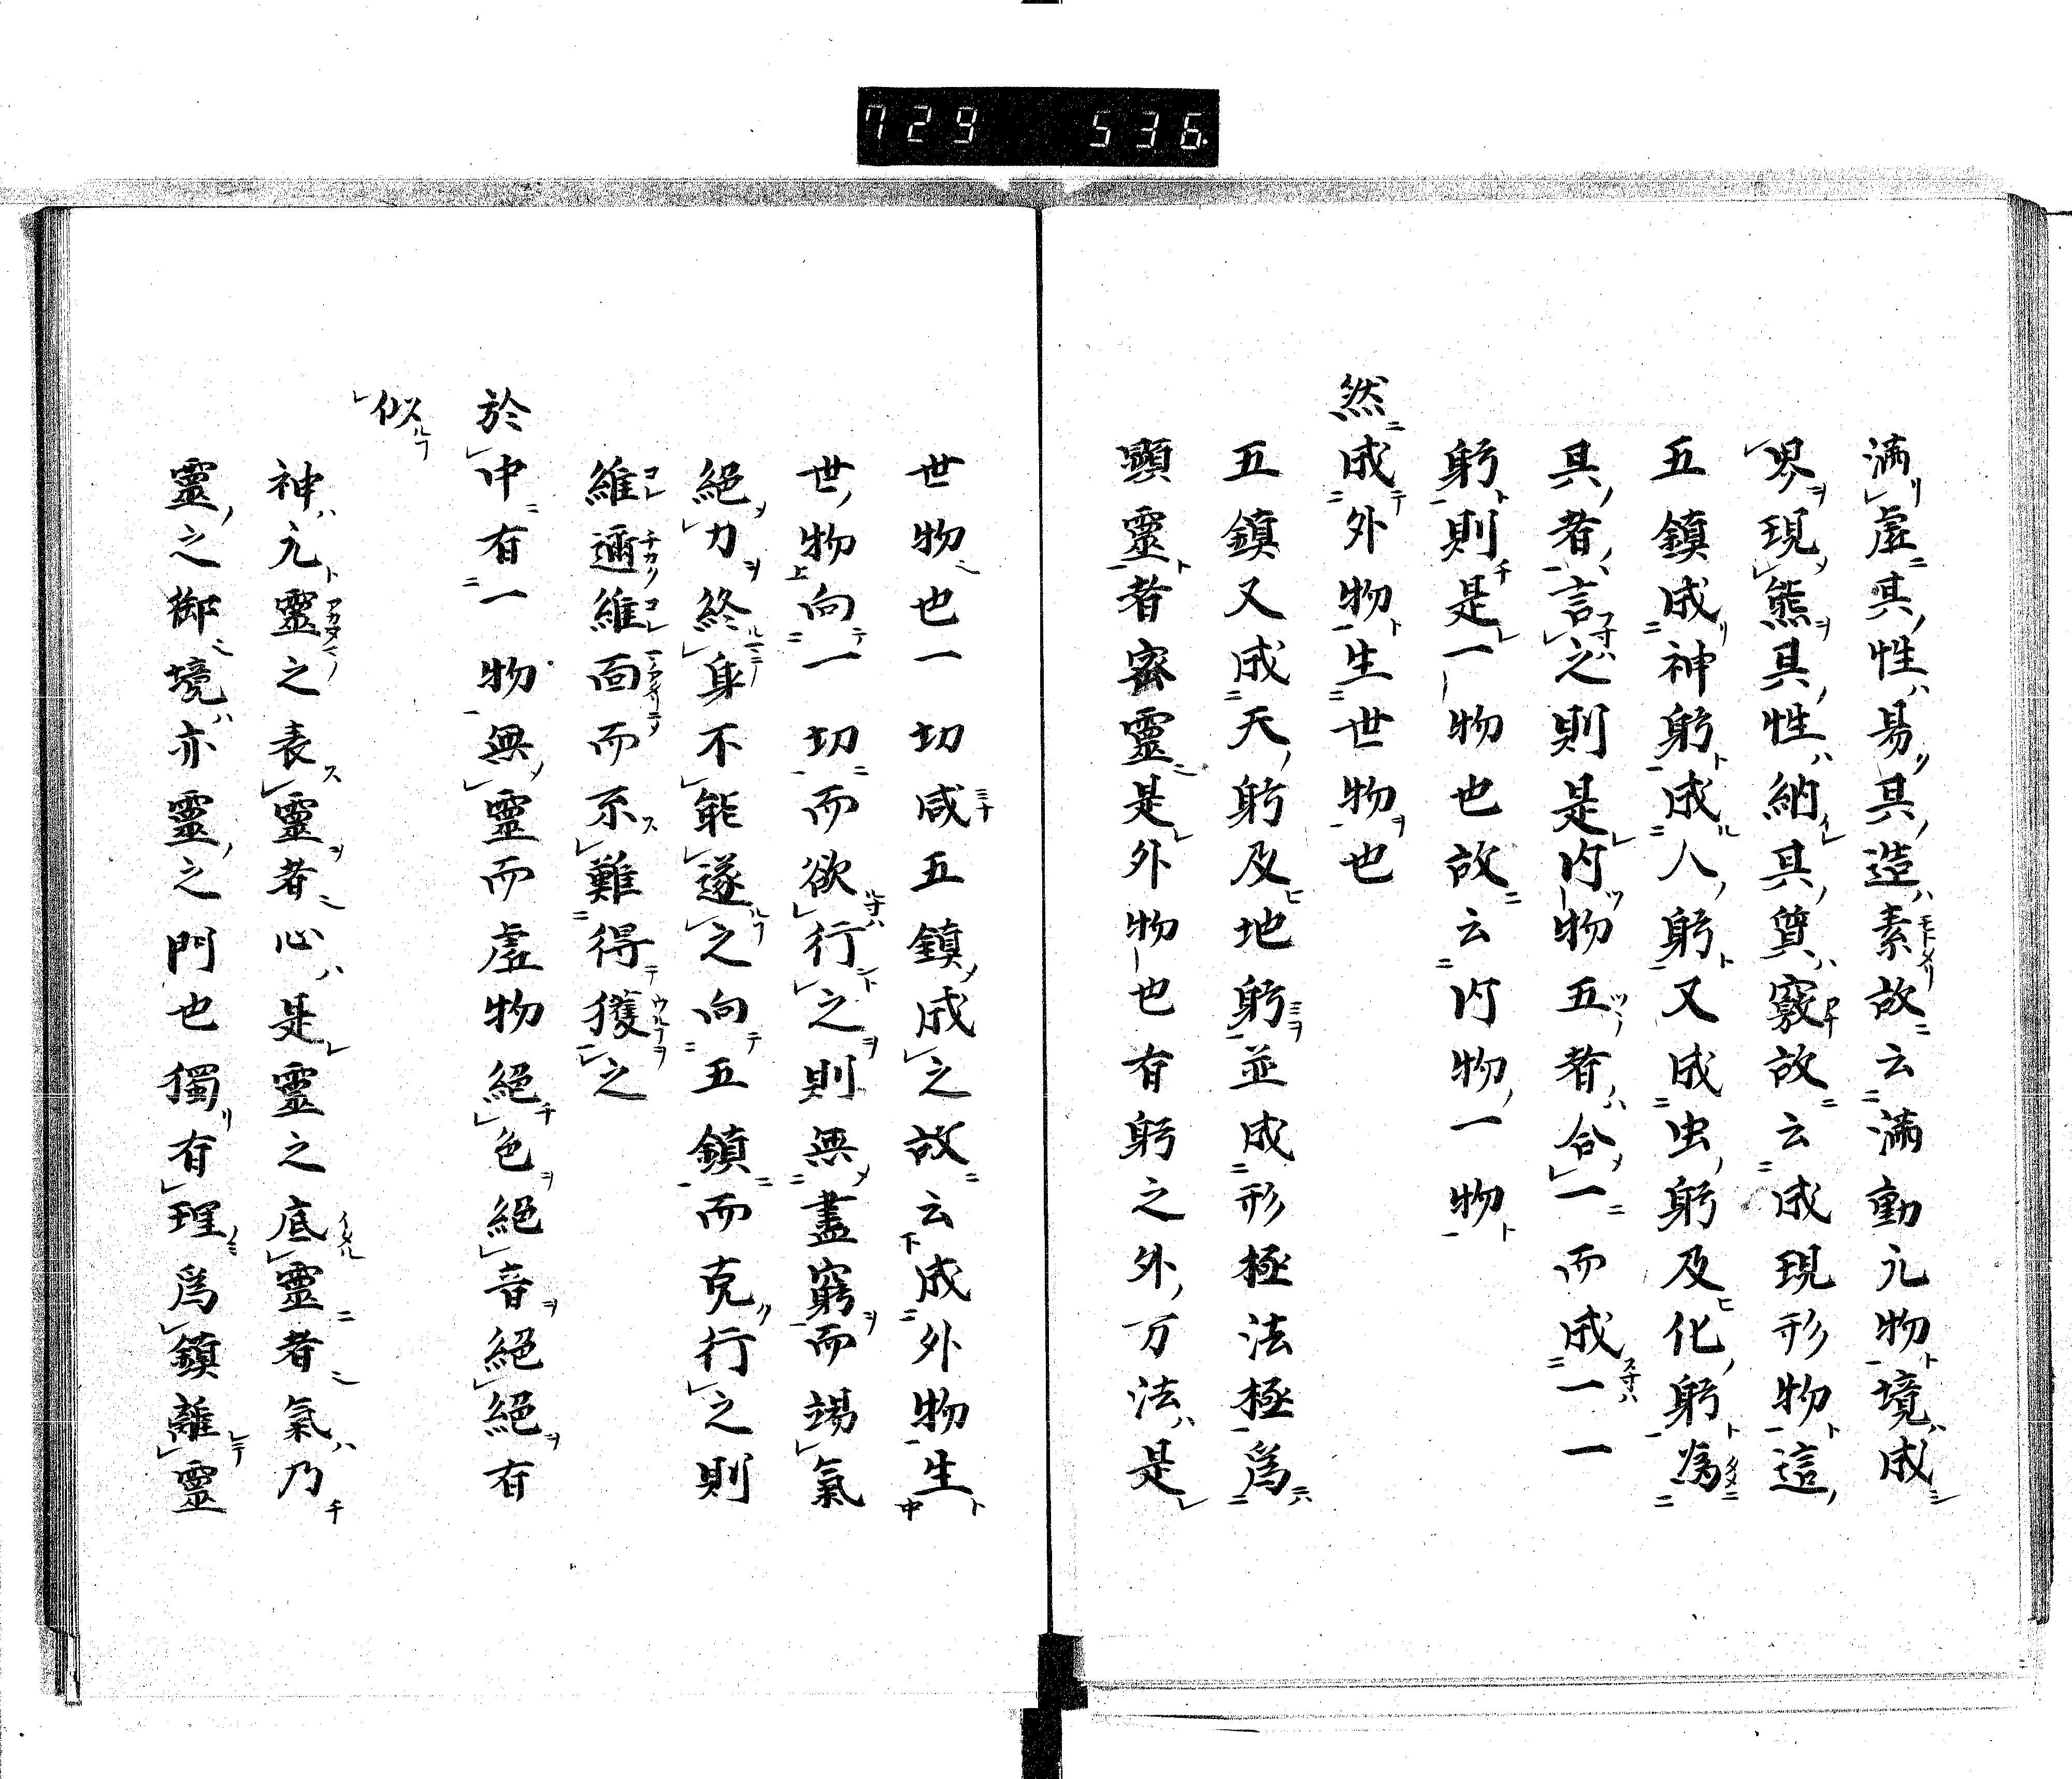 729 536
満虚其性易其造素故云満動元物境成
畀現熊具性納其質竅故云成現形物這
五鎮成神躬成人躬又成虫躬及化躬為
具者言之則是内物五者合一而成一一
躬則是一物也故云内物一物
然成外物生世物也
五鎮又成天躬及地躬並成形極法極爲
顕靈者密靈是外物也有躬之外万法是
世物也一切咸五鎮成之故云成外物生
世物向一切而欲行之則無盡窮而竭氣
絕力終身不能遂之向五鎮而克行之則
維邇維面而系難得獲之
於中有一物無靈而虚物絕色絕音絕絕有
似
神元靈之表靈者心是靈之底靈者氣乃
靈之御境亦靈之門也獨有理爲鎮離靈